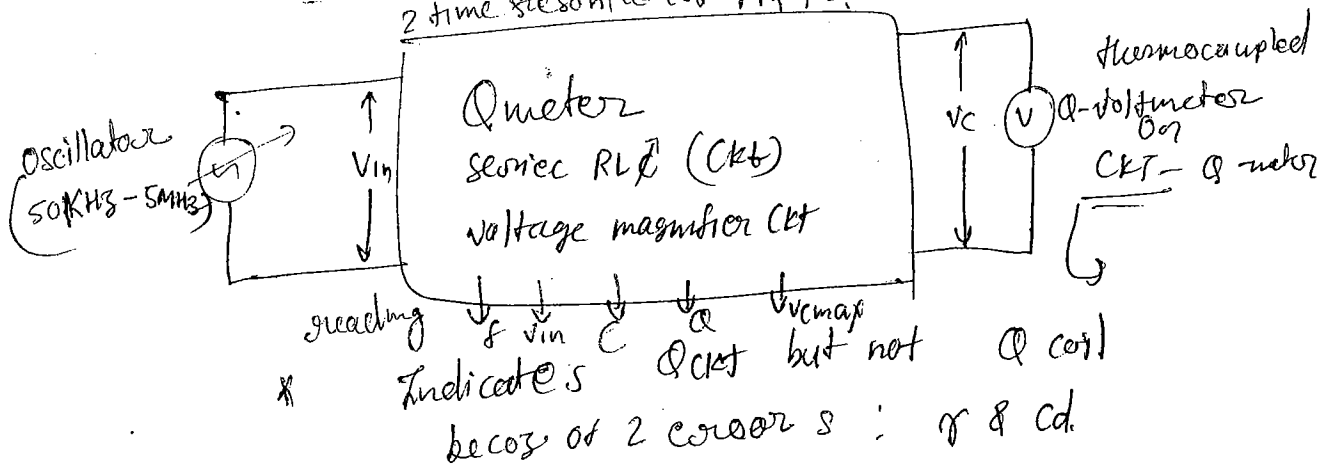 2 time
thermocoupled
Oscillator
50KHz - 5MHz
Vin
Qmeter
series RLC (Ckt)
voltage magnifier Ckt
Vc
V
Q-voltmeter
Or
CKT - Q meter
reading
f Vin C Q Vcmax
* Indicates Qckt but not Q coil
becoz of 2 errors : r & Cd.